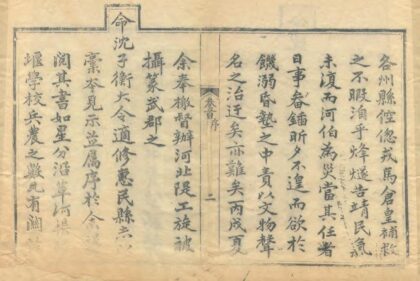 各州縣倥傯戎馬倉皇補救
之不暇洎乎烽燧告靖民氣
未復而河伯為災當其任者
日事畚鍤昕夕不遑而欲於
饑溺昏墊之中責以文物聲
名之治迂矣亦難矣丙戌夏
卷首序 二
余奉檄督辦河北隄工旋被
攝篆武郡之
命沈子衡大令適修惠民縣志
稾本見示並屬序於余
閱其書如星分沿革河渠
堰學校兵農之數凡有關